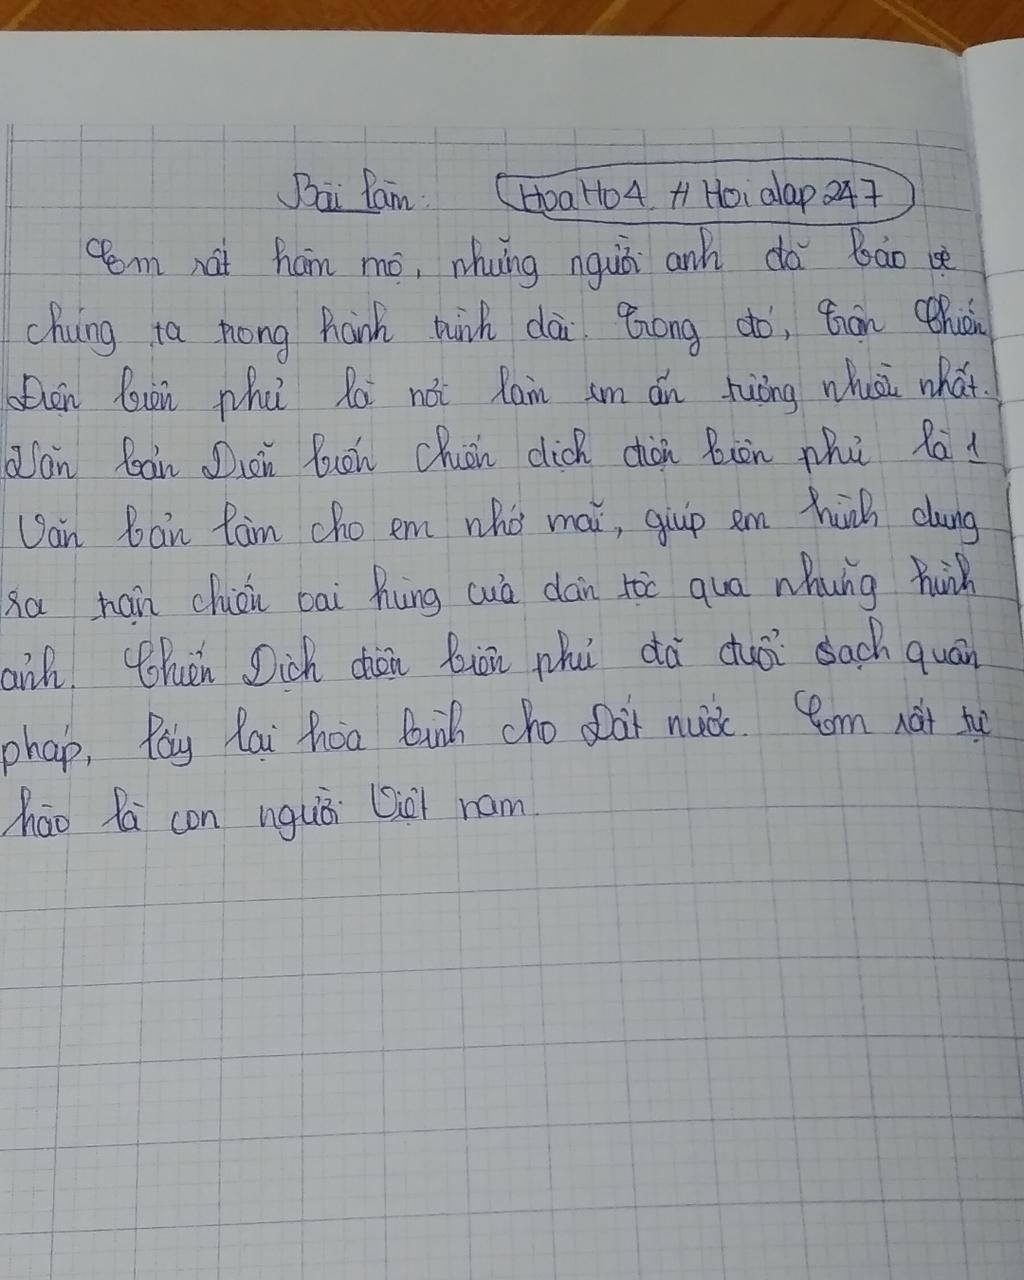 Bài làm: HoaHo4 # Hoi đap 247
Em rất hâm mộ, những người anh đã bảo vệ
chúng ta trong hành trình dài. Trong đó, trận Chiến
Điện biên phủ là nơi làm em ấn tượng nhiều nhất.
Văn bản Diễn biến Chiến dịch điện biên phủ là 1
Văn bản làm cho em nhớ mãi, giúp em hình dung
ra trận chiến oai hùng của dân tộc qua những hình
ảnh. Chiến Dịch điện biên phủ đã đuổi sạch quân
pháp, lấy lại hòa bình cho Đất nước. Em rất tự
hào là con người Việt nam.